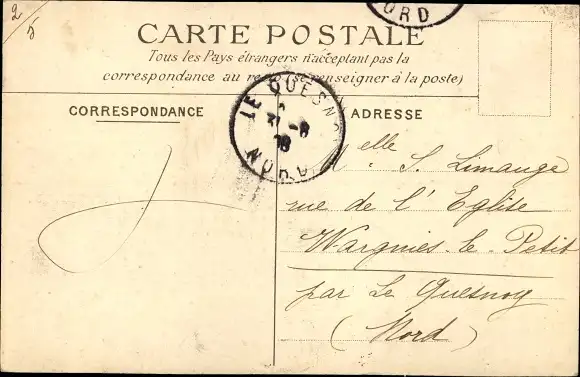 2
5
NORD
CARTE POSTALE
Tous les Pays étrangers n'acceptant pas la
correspondance au (se renseigner à la poste)
CORRESPONDANCE
ADRESSE
LE QUESNOY
NORD
elle S. Limange
rue de l'Eglise
Wargnies-le-Petit
par Le Quesnoy
(Nord)